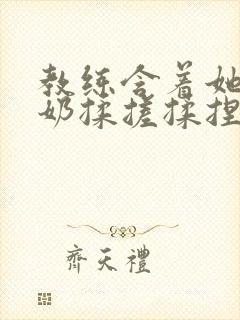 教练含着她
奶揉搓揉捏
齊天禮